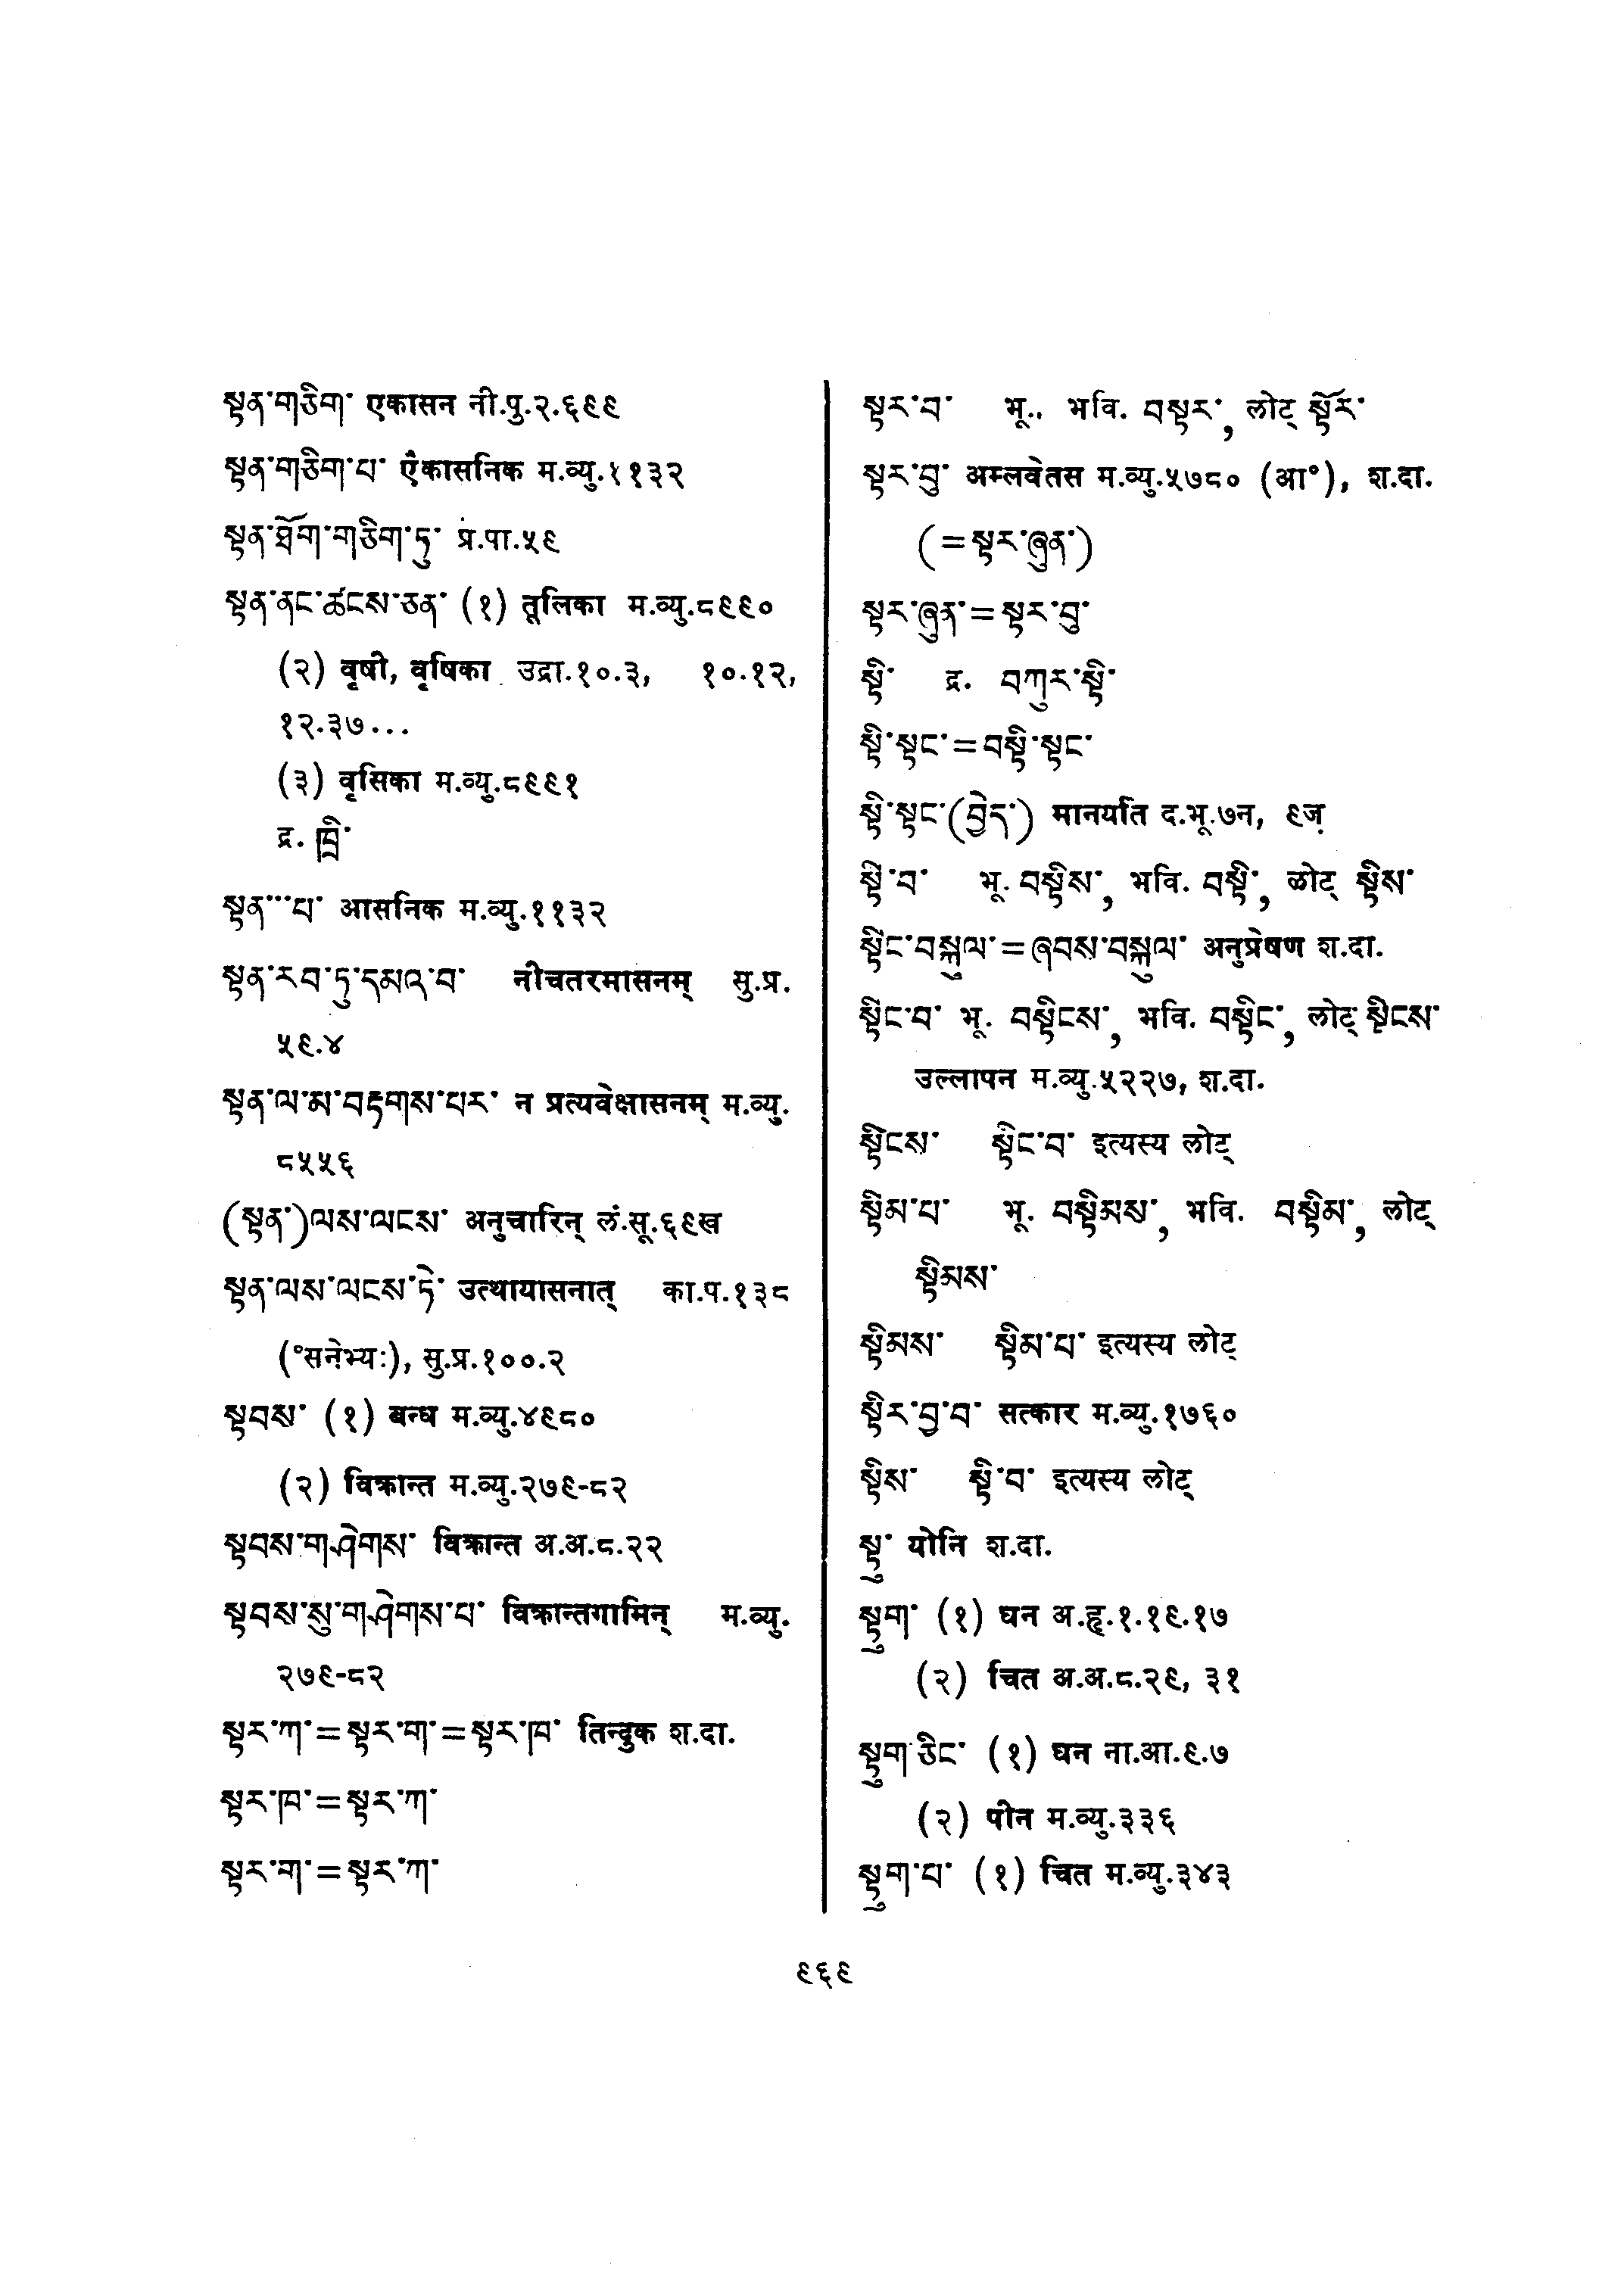 སྟན་གཅིག་ एकासन नी.पु.२.६९९
སྟན་གཅིག་པ་ ऐकासनिक म.व्यु.११३२
སྟན་ཐོག་གཅིག་ཏུ་ प्र.पा.५९
སྟན་ནང་ཚངས་ཅན་ (१) तूलिका म.व्यु.८९९०
(२) वृषी, वृषिका उद्रा.१०.३, १०.१२,
१२.३७...
(३) वृसिका म.व्यु.८९९१
द्र. ཁྲི་
སྟན་་་པ་ आसनिक म.व्यु.११३२
སྟན་རབ་ཏུ་དམའ་བ་ नीचतरमासनम् सु.प्र.
५९.४
སྟན་ལ་མ་བརྟགས་པར་ न प्रत्यवेक्षासनम् म.व्यु.
८५५६
(སྟན་)ལས་ལངས་ अनुचारिन् लं.सू.६९ख
སྟན་ལས་ལངས་ཏེ་ उत्थायासनात् का.प.१३८
(°सनेभ्यः), सु.प्र.१००.२
སྟབས་ (१) बन्ध म.व्यु.४९८०
(२) विक्रान्त म.व्यु.२७९-८२
སྟབས་གཤེགས་ विक्रान्त अ.अ.८.२२
སྟབས་སུ་གཤེགས་པ་ विक्रान्तगामिन् म.व्यु.
२७९-८२
སྟར་ཀ་=སྟར་ག་=སྟར་ཁ་ तिन्दुक श.दा.
སྟར་ཁ་=སྟར་ཀ་
སྟར་ག་=སྟར་ཀ་
སྟར་བ་ भू., भवि. བསྟར་, लोट् སྟོར་
སྟར་བུ་ अम्लवेतस म.व्यु.५७८० (आ°), श.दा.
(=སྟར་ཞུན་)
སྟར་ཞུན་=སྟར་བུ་
སྟི་ द्र. བཀུར་སྟི་
སྟི་སྟང་=བསྟི་སྟང་
སྟི་སྟང་(བྱེད་) मानयति द.भू.७न, ९ज
སྟི་བ་ भू. བསྟིས་, भवि. བསྟི་, लोट् སྟིས་
སྟིང་བསྐུལ་=ཞབས་བསྐུལ་ अनुप्रेषण श.दा.
སྟིང་བ་ भू. བསྟིངས་, भवि. བསྟིང་, लोट् སྟིངས་
उल्लापन म.व्यु.५२२७, श.दा.
སྟིངས་ སྟིང་བ་ इत्यस्य लोट्
སྟིམ་པ་ भू. བསྟིམས་, भवि. བསྟིམ་, लोट्
སྟིམས་
སྟིམས་ སྟིམ་པ་ इत्यस्य लोट्
སྟིར་བྱ་བ་ सत्कार म.व्यु.१७६०
སྟིས་ སྟི་བ་ इत्यस्य लोट्
སྟུ་ योनि श.दा.
སྟུག་ (१) घन अ.हृ.१.१९.१७
(२) चित अ.अ.८.२९, ३१
སྟུག་ཅིང་ (१) घन ना.आ.९.७
(२) पीन म.व्यु.३३६
སྟུག་པ་ (१) चित म.व्यु.३४३
९६९